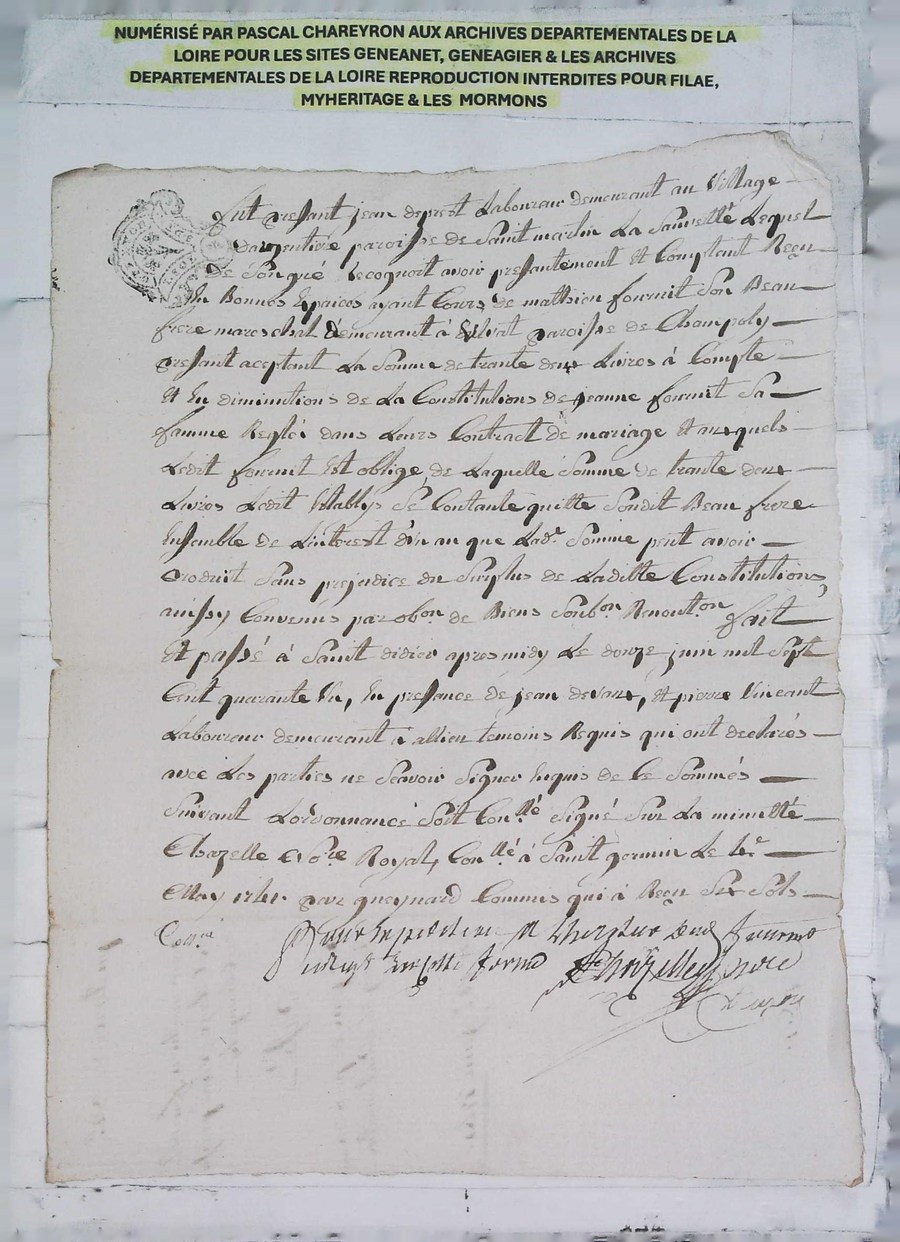 NUMÉRISÉ PAR PASCAL CHAREYRON AUX ARCHIVES DEPARTEMENTALES DE LA
LOIRE POUR LES SITES GENEANET, GENEAGIER & LES ARCHIVES
DEPARTEMENTALES DE LA LOIRE REPRODUCTION INTERDITES POUR FILAE,
MYHERITAGE & LES MORMONS
fut presant jean deprest Laboureur demeurant au Village
Dargentière paroisse de Saint martin La Sauvetté Lequel
De Songré Recognoit avoir presantement et Comptant Reçu
En Bonnes Espaices ayant Cours de mathieu fournit Son Beau
frere mareschal demeurant à paroisse de Champoly
presant aceptant La Somme de trante deux Livres à Compte
Et En diminutions de La Constitutions de jeanne fournit Sa
famme Reglés dans Leurs Contract de mariage Et auxquels
Ledit fournit Est obligé, de Laquelle Somme de trante deux
Livres Ledit Etablys Se Contante quitte Sondit Beau frere
Ensemble de Linterest d'un an que Lad. Somme peut avoir
produit Sans prejudice du Surplus de Laditte Constitutions,
ainsy Convenus par obon. de Biens Soubon. Renonton fait
Et passé à Saint didier apres midy Le douze juin mil Sept
Cent quarante Un, En presance de jean devaux, Et pierre Vincent
Laboureur demeurant à allieu temoins Requis qui ont declarés
avec Les parties ne Scavoir Signer Enquis de Ce Sommés
Suivant Lordonnance Soit Conllé Signé Sur La minutte
Chazelle Nore Royal, Conllé à Saint germin Le
May 1741. par gueynard Commis qui à Reçu Six Sols
Pour Expedition
Chazelle, nore